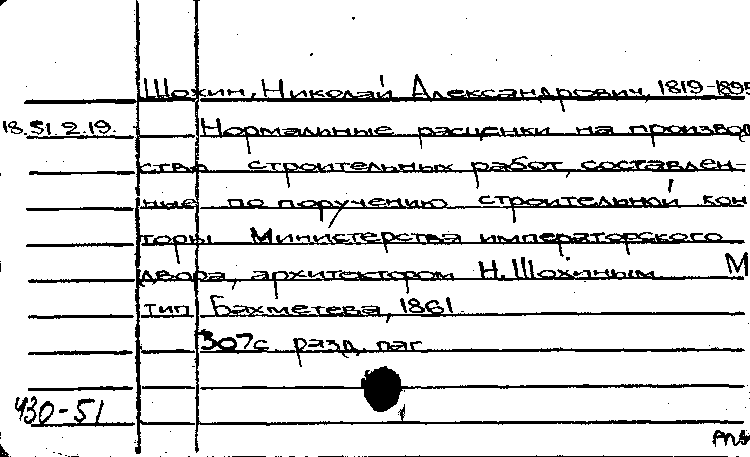 Шохин, Николай Александрович, 1819-1895
18.51.2.19. Нормальные расценки на производ
ства строительных работ, составлен-
ные по поручению строительной кон
торы Министерства императорского
двора, архитектором Н. Шохиным М
тип Бахметева, 1861.
307с разд. паг
430-51